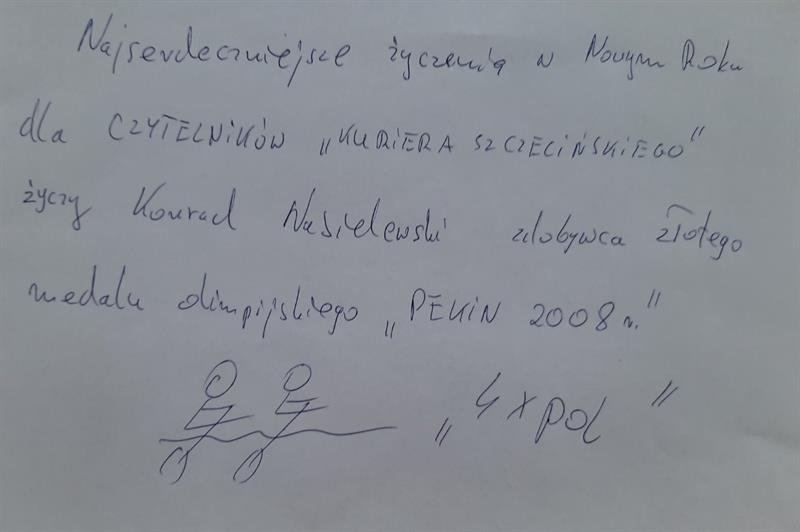 Najserdeczniejsze życzenia w Nowym Roku
dla CZYTELNIKÓW „KURIERA SZCZECIŃSKIEGO”
życzy Konrad Wasielewski zdobywca złotego
medalu olimpijskiego „PEKIN 2008 r.”
„4 x POL”